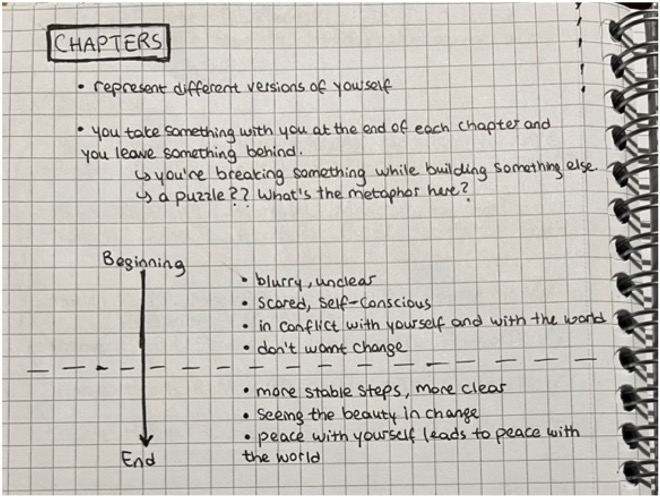 CHAPTERS
• represent different versions of yourself
• you take something with you at the end of each chapter and
you leave something behind.
↳ you're breaking something while building something else.
↳ a puzzle?? What's the metaphor here?
Beginning
• blurry, unclear
• scared, self-conscious
• in conflict with yourself and with the world
• don't want change
• more stable steps, more clear
• seeing the beauty in change
• peace with yourself leads to peace with
the world
End